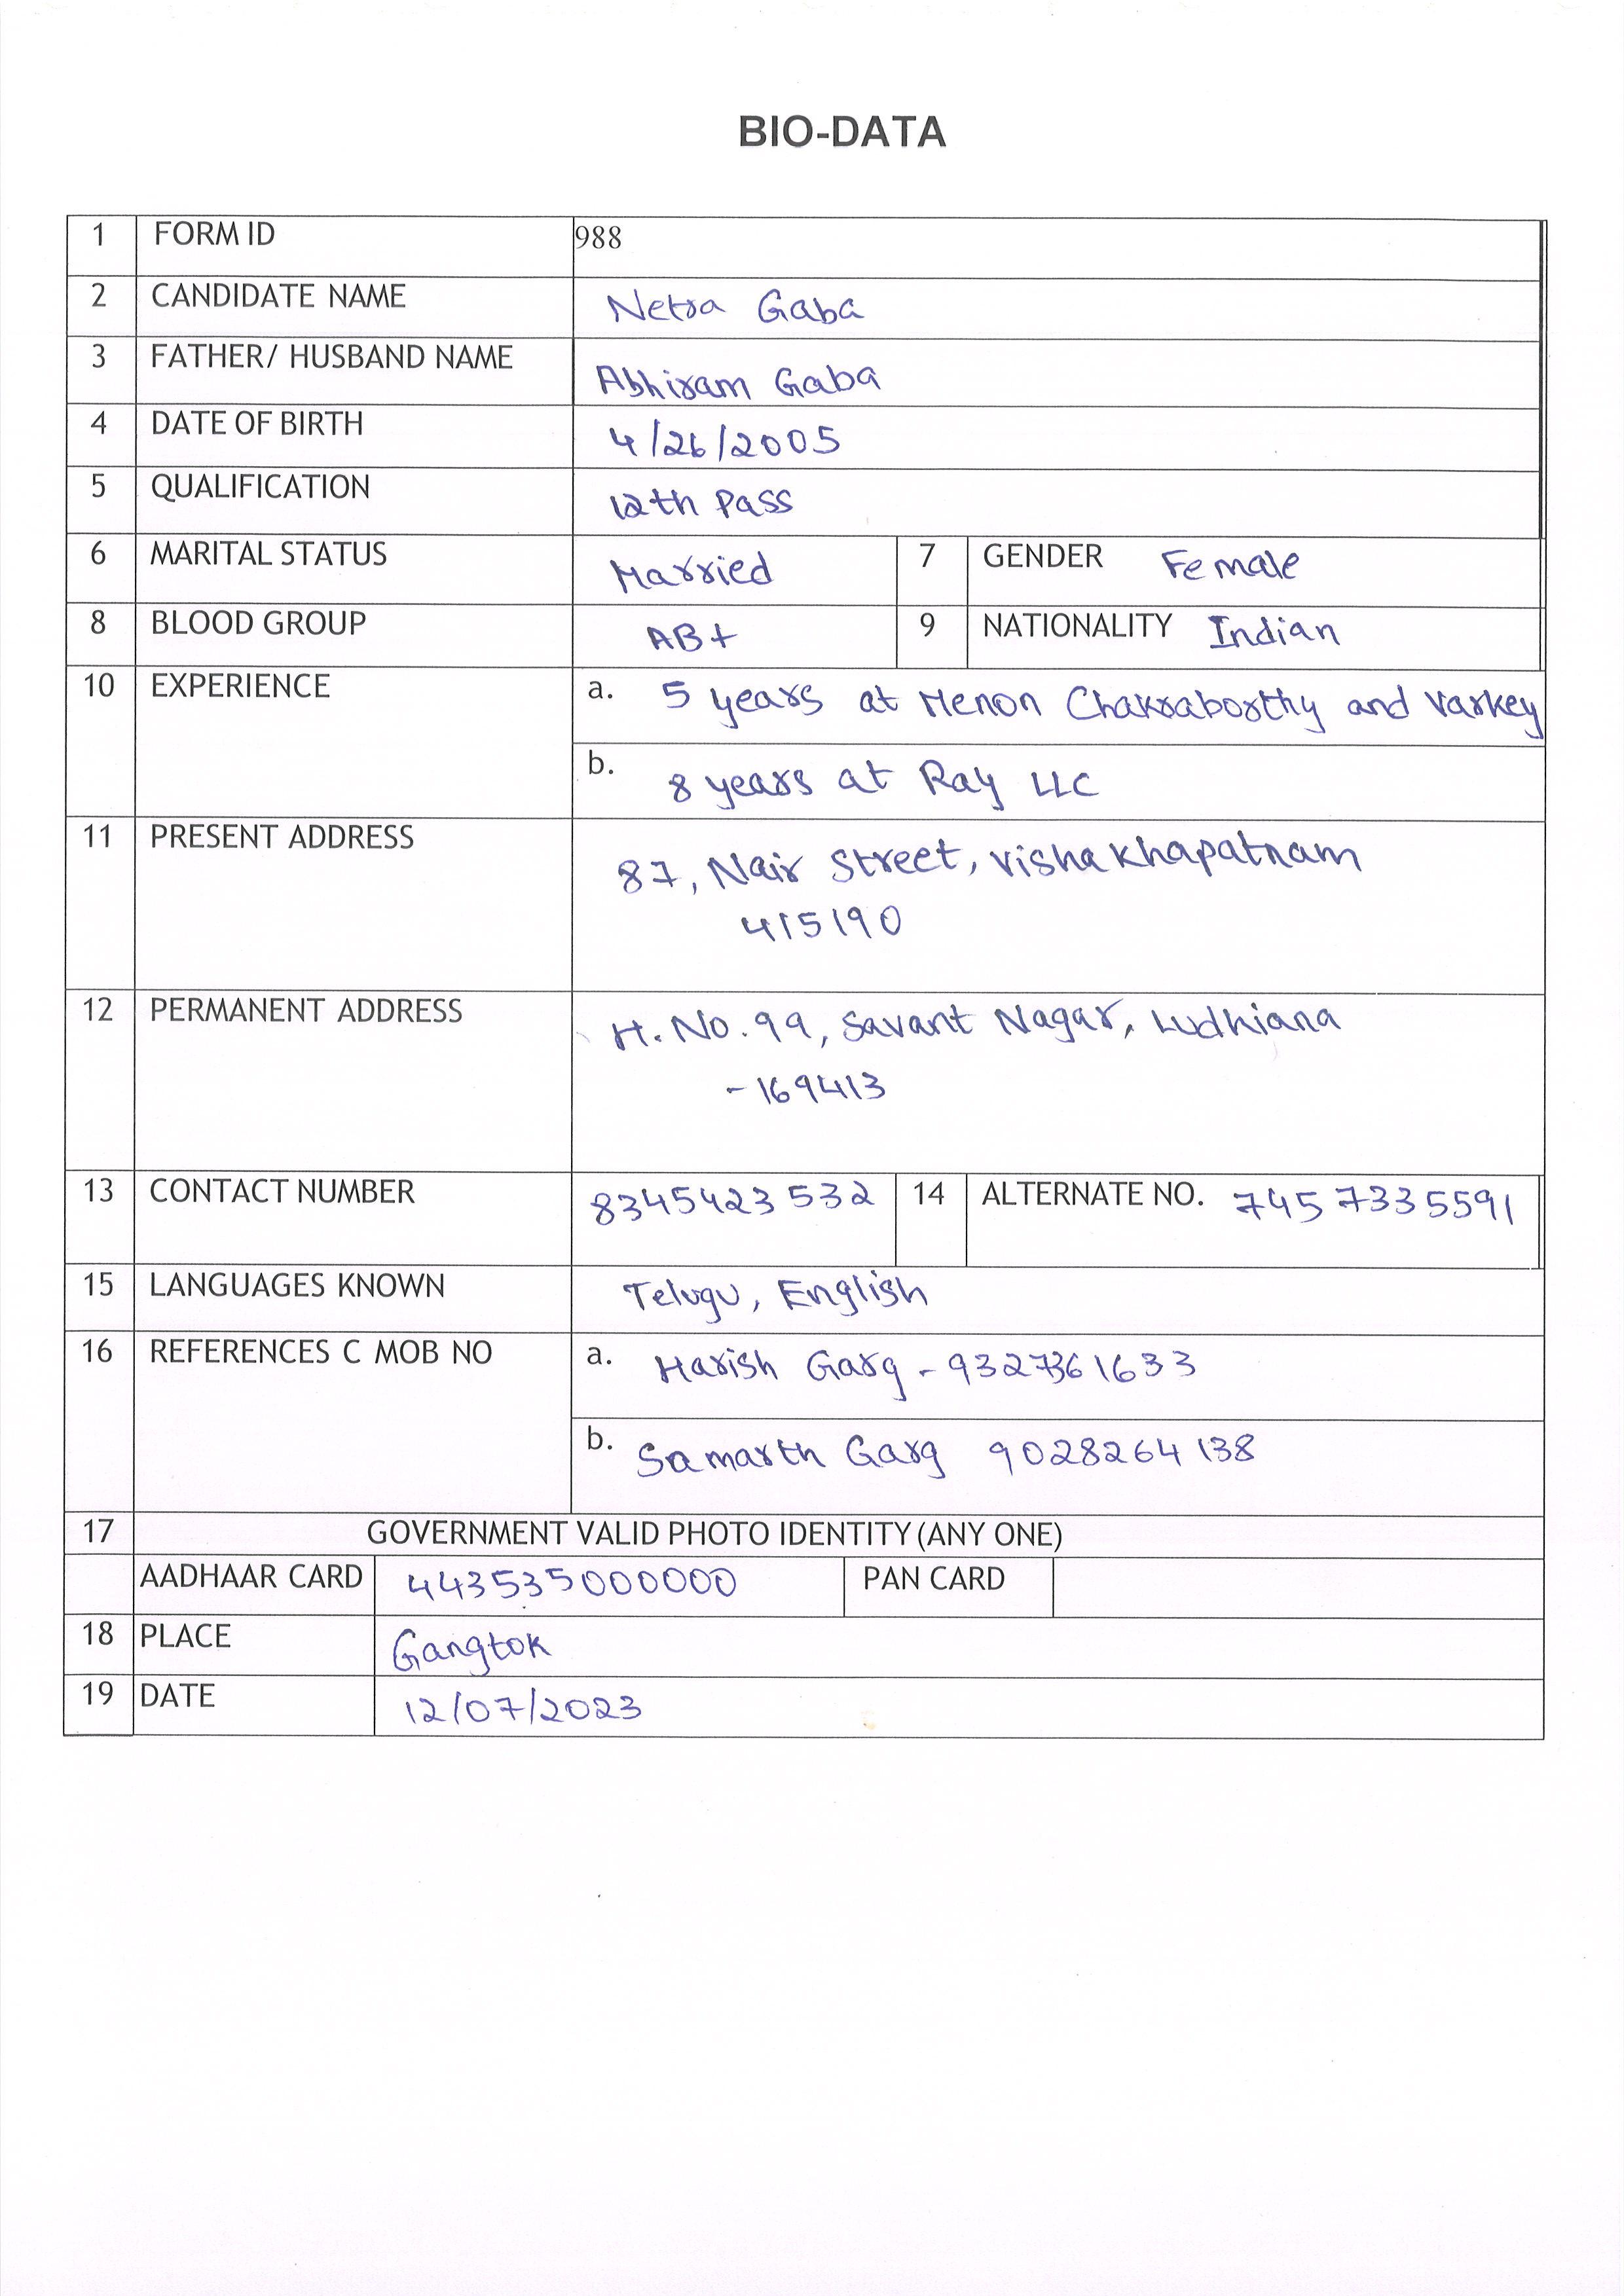 BIO-DATA
1 FORM ID 988
2 CANDIDATE NAME Netra Gaba
3 FATHER/ HUSBAND NAME Abhiram Gaba
4 DATE OF BIRTH 4/26/2005
5 QUALIFICATION 12th Pass
6 MARITAL STATUS Married 7 GENDER Female
8 BLOOD GROUP AB+ 9 NATIONALITY Indian
10 EXPERIENCE a. 5 years at Menon Chakraborthy and Varkey
b. 8 years at Ray LLC
11 PRESENT ADDRESS 87, Nair Street, Vishakhapatnam
415190
12 PERMANENT ADDRESS H. No. 99, Savant Nagar, Ludhiana
-169413
13 CONTACT NUMBER 8345423532 14 ALTERNATE NO. 7457335591
15 LANGUAGES KNOWN Telugu, English
16 REFERENCES C MOB NO a. Harish Garg - 9327361633
b. Samarth Garg 9028264138
17 GOVERNMENT VALID PHOTO IDENTITY (ANY ONE)
AADHAAR CARD 443535000000 PAN CARD
18 PLACE Gangtok
19 DATE 12/07/2023